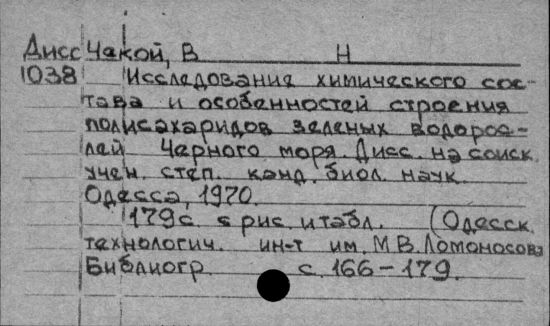 Дисс Чакой, В Н
1038 Исследование химического сос-
тава и особенностей строения
полисахаридов зеленых водорос-
лей Черного моря. Дисс. на соиск.
учен. степ. канд. биол. наук.
Одесса, 1970.
179с. с рис. и табл. (Одесск.
технологич. ин-т им. М.В. Ломоносова
Библиогр. с. 166-179.